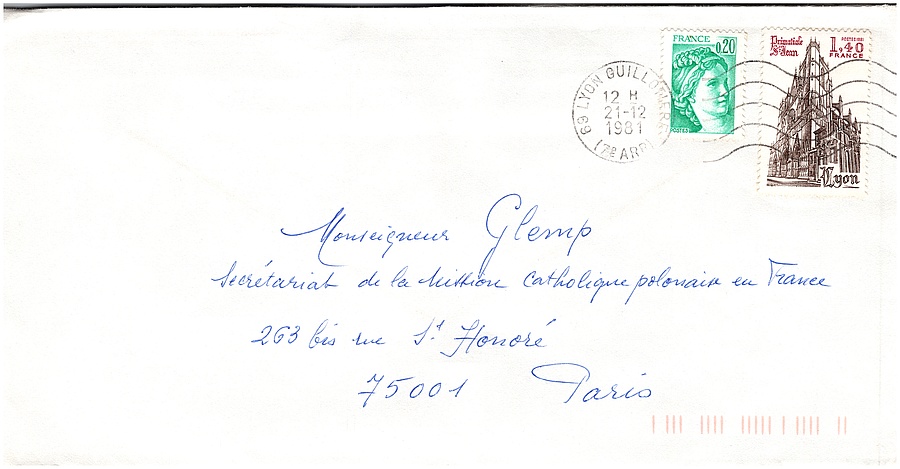 FRANCE 0,20
POSTES
Primatiale
St Jean
POSTES 1981
1,40
FRANCE
Lyon
69 LYON GUILLOTIERE
12 H
21-12
1981
(7E ARR)
Monseigneur Glemp
Secrétariat de la Mission catholique polonaise en France
263 bis rue St Honoré
75001 Paris